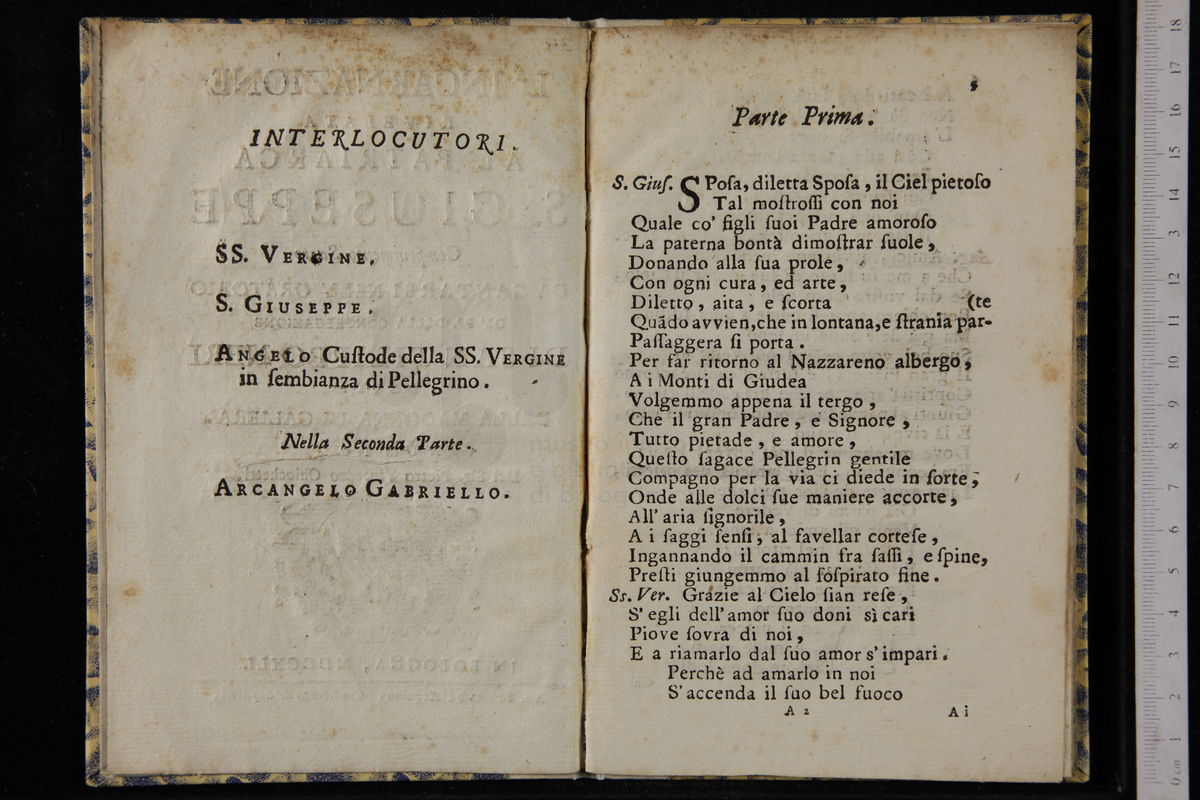 INTERLOCUTORI.
SS. VERGINE.
S. GIUSEPPE.
ANGELO Cuſtode della SS. VERGINE
in ſembianza di Pellegrino.
Nella Seconda Parte.
ARCANGELO GABRIELLO.
Parte Prima.
S. Giuſ. SPoſa, diletta Spoſa, il Ciel pietoſo
Tal moſtroſſi con noi
Quale co' figli ſuoi Padre amoroſo
La paterna bontà dimoſtrar ſuole,
Donando alla ſua prole,
Con ogni cura, ed arte,
Diletto, aita, e ſcorta (te
Quãdo avvien, che in lontana, e ſtrania par-
Paſſaggera ſi porta.
Per far ritorno al Nazzareno albergo,
A i Monti di Giudea
Volgemmo appena il tergo,
Che il gran Padre, e Signore,
Tutto pietade, e amore,
Queſto ſagace Pellegrin gentile
Compagno per la via ci diede in ſorte;
Onde alle dolci ſue maniere accorte,
All' aria ſignorile,
A i ſaggi ſenſi, al favellar corteſe,
Ingannando il cammin fra ſaſſi, e ſpine,
Preſti giungemmo al ſoſpirato fine.
Ss. Ver. Grazie al Cielo ſian reſe,
S' egli dell' amor ſuo doni sì cari
Piove ſovra di noi,
E a riamarlo dal ſuo amor s' impari.
Perchè ad amarlo in noi
S' accenda il ſuo bel fuoco
A 2 Ai